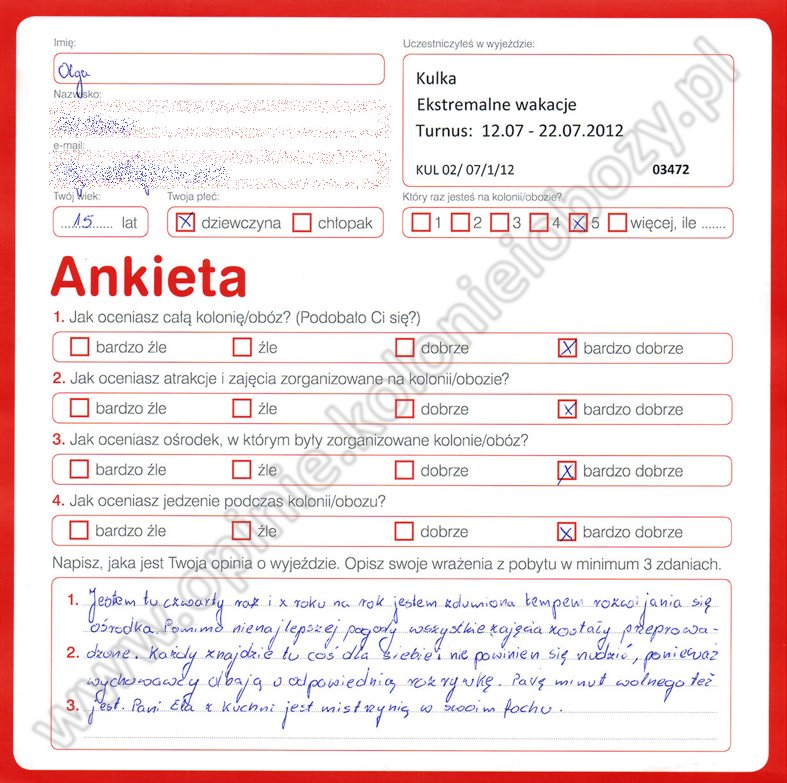 Imię:
Olga
Nazwisko:
e-mail:
Twój wiek:
....15...... lat
Twoja płeć:
dziewczyna chłopak
Uczestniczyłeś w wyjeździe:
Kulka
Ekstremalne wakacje
Turnus: 12.07 - 22.07.2012
KUL 02/ 07/1/12 03472
Który raz jesteś na kolonii/obozie?
1 2 3 4 5 więcej, ile .......
Ankieta
1. Jak oceniasz całą kolonię/obóz? (Podobało Ci się?)
bardzo źle źle dobrze bardzo dobrze
2. Jak oceniasz atrakcje i zajęcia zorganizowane na kolonii/obozie?
bardzo źle źle dobrze bardzo dobrze
3. Jak oceniasz ośrodek, w którym były zorganizowane kolonie/obóz?
bardzo źle źle dobrze bardzo dobrze
4. Jak oceniasz jedzenie podczas kolonii/obozu?
bardzo źle źle dobrze bardzo dobrze
Napisz, jaka jest Twoja opinia o wyjeździe. Opisz swoje wrażenia z pobytu w minimum 3 zdaniach.
1. Jestem tu czwarty raz i z roku na rok jestem zdumiona tempem rozwijania się
ośrodka. Pomimo nienajlepszej pogody wszystkie zajęcia zostały przeprowa-
2. dzone. Każdy znajdzie tu coś dla siebie i nie powinien się nudzić, ponieważ
wychowawcy dbają o odpowiednią rozrywkę. Parę minut wolnego też
3. jest. Pani Ela z kuchni jest mistrzynią w swoim fachu.
www.opinie.kolonieiobozy.pl